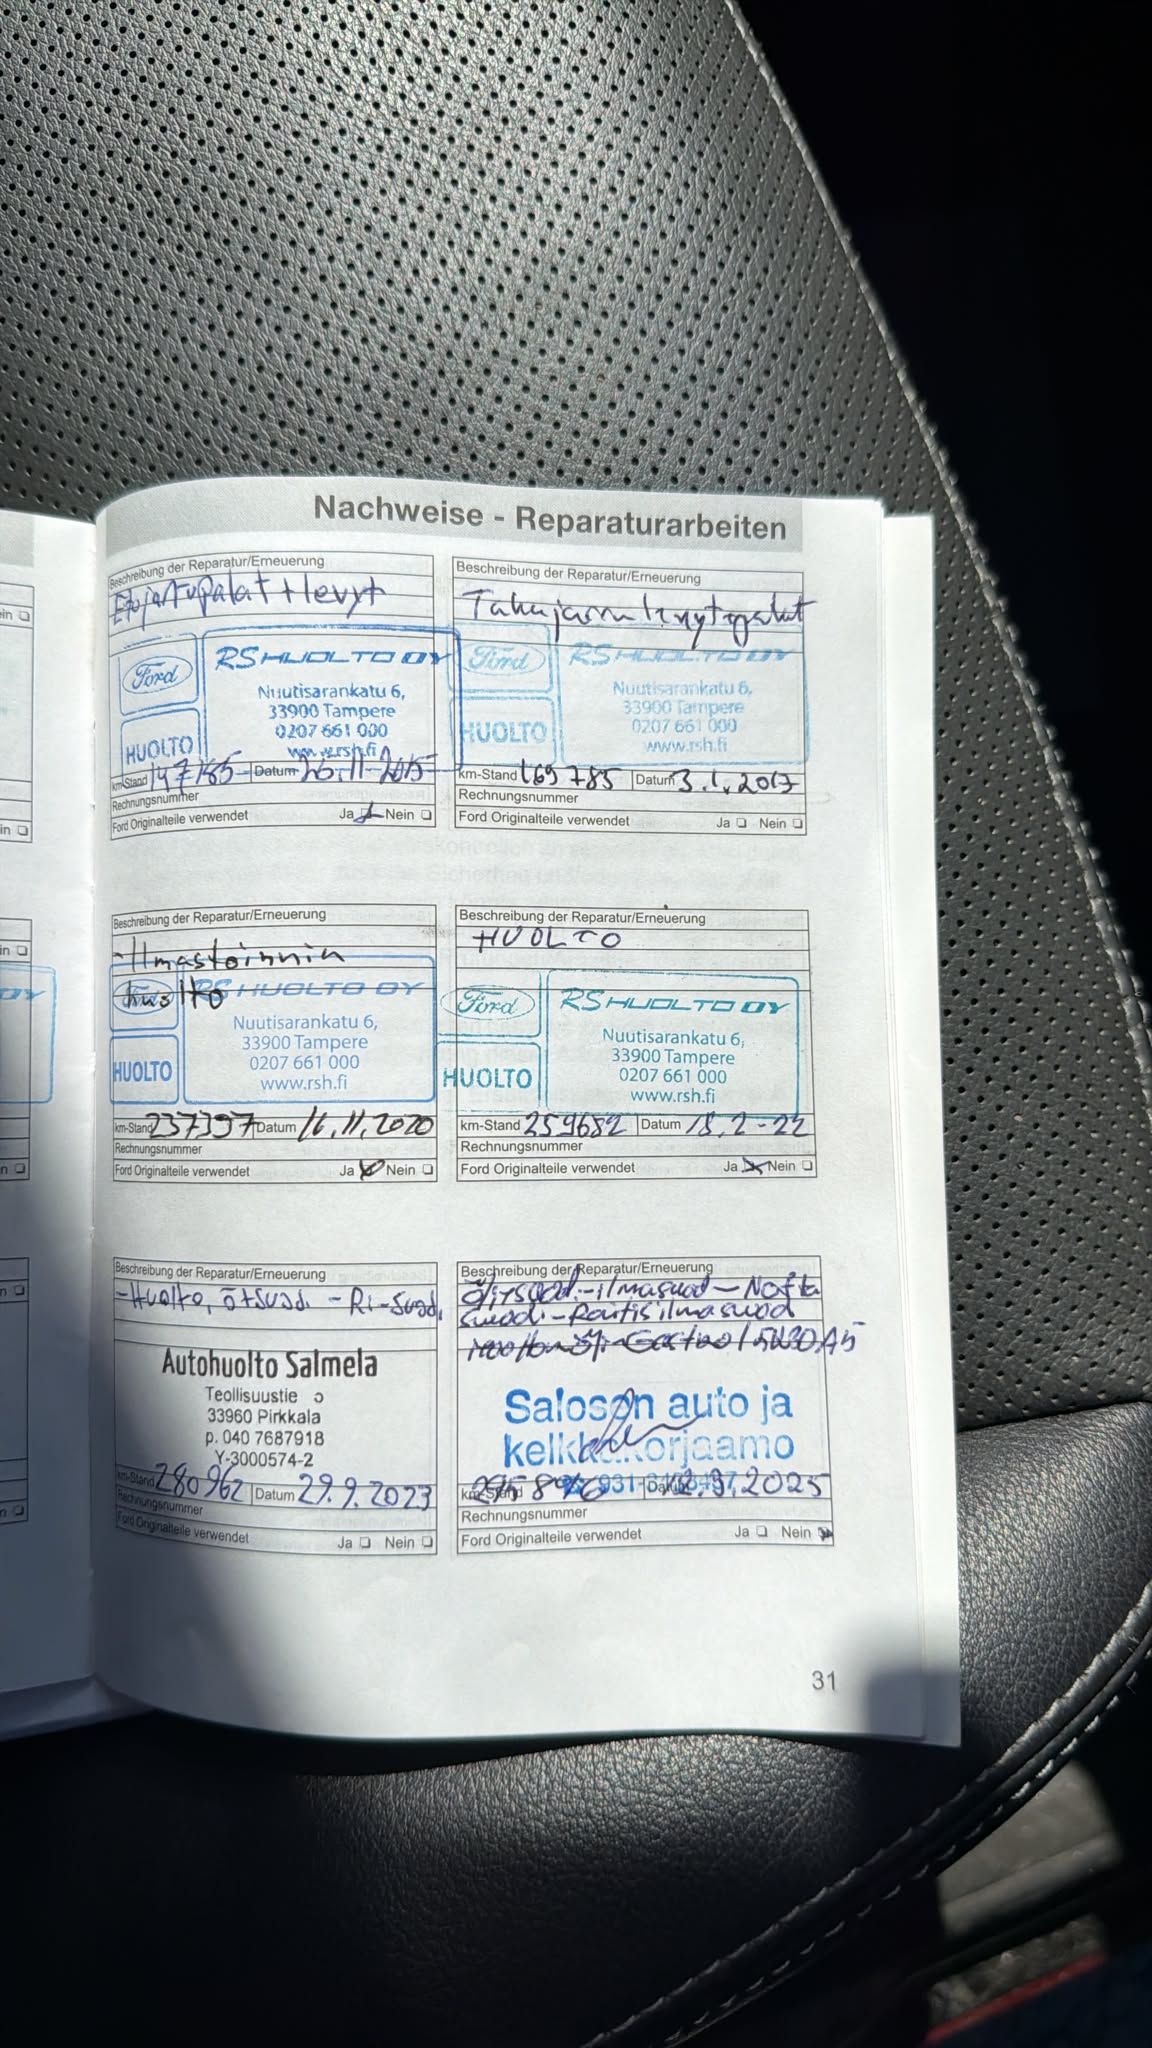 Nachweise - Reparaturarbeiten
Beschreibung der Reparatur/Erneuerung
Etujarrupalat + levyt
Ford
HUOLTO
RS HUOLTO OY
Nuutisarankatu 6,
33900 Tampere
0207 661 000
www.rsh.fi
km-Stand 147165 Datum 26.11.2015
Rechnungsnummer
Ford Originalteile verwendet Ja Nein
Beschreibung der Reparatur/Erneuerung
Takajarrulevyt
Ford
HUOLTO
RS HUOLTO OY
Nuutisarankatu 6,
33900 Tampere
0207 661 000
www.rsh.fi
km-Stand 169785 Datum 3.1.2017
Rechnungsnummer
Ford Originalteile verwendet Ja Nein
Beschreibung der Reparatur/Erneuerung
-Ilmastoinnin
huolto
Ford
HUOLTO
RS HUOLTO OY
Nuutisarankatu 6,
33900 Tampere
0207 661 000
www.rsh.fi
km-Stand 237397 Datum 16.11.2020
Rechnungsnummer
Ford Originalteile verwendet Ja Nein
Beschreibung der Reparatur/Erneuerung
HUOLTO
Ford
HUOLTO
RS HUOLTO OY
Nuutisarankatu 6,
33900 Tampere
0207 661 000
www.rsh.fi
km-Stand 259682 Datum 18.2-22
Rechnungsnummer
Ford Originalteile verwendet Ja Nein
Beschreibung der Reparatur/Erneuerung
-Huolto, Ö+Suod. - Ri-Suod.
Autohuolto Salmela
Teollisuustie
33960 Pirkkala
p. 040 7687918
Y-3000574-2
km-Stand 280962 Datum 29.9.2023
Rechnungsnummer
Ford Originalteile verwendet Ja Nein
Beschreibung der Reparatur/Erneuerung
Öljy+suod.-ilmasuod-Nafta
suod.-Raitisilmasuod
Castrol 5W30 A5
Salosen auto ja
kelkkakorjaamo
km-Stand Datum 12.3.2025
Rechnungsnummer
Ford Originalteile verwendet Ja Nein
31